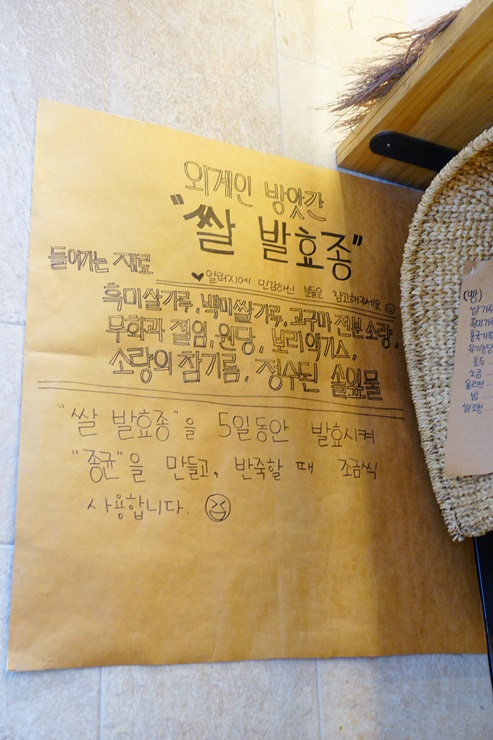 외계인 방앗간
"쌀 발효종"
들어가는 재료
♥알러지에 민감하신 분들은 참고해주세요☺
흑미쌀가루, 백미쌀가루, 고구마 전분 소량,
무화과 절임, 원당, 보리엑기스,
소량의 참기름, 정수된 솔잎물
"쌀 발효종"을 5일동안 발효시켜
"종균"을 만들고, 반죽할 때 조금씩
사용합니다.
(빵)
쌀가루
흑미가루
소금